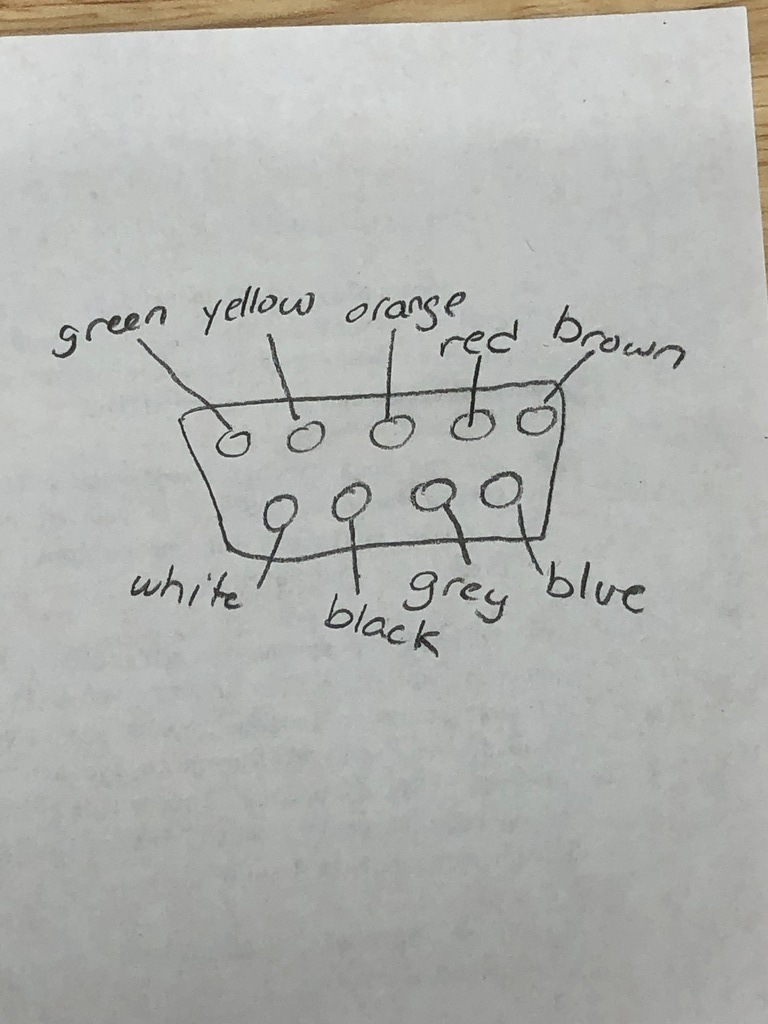 green yellow orange red brown
white black grey blue